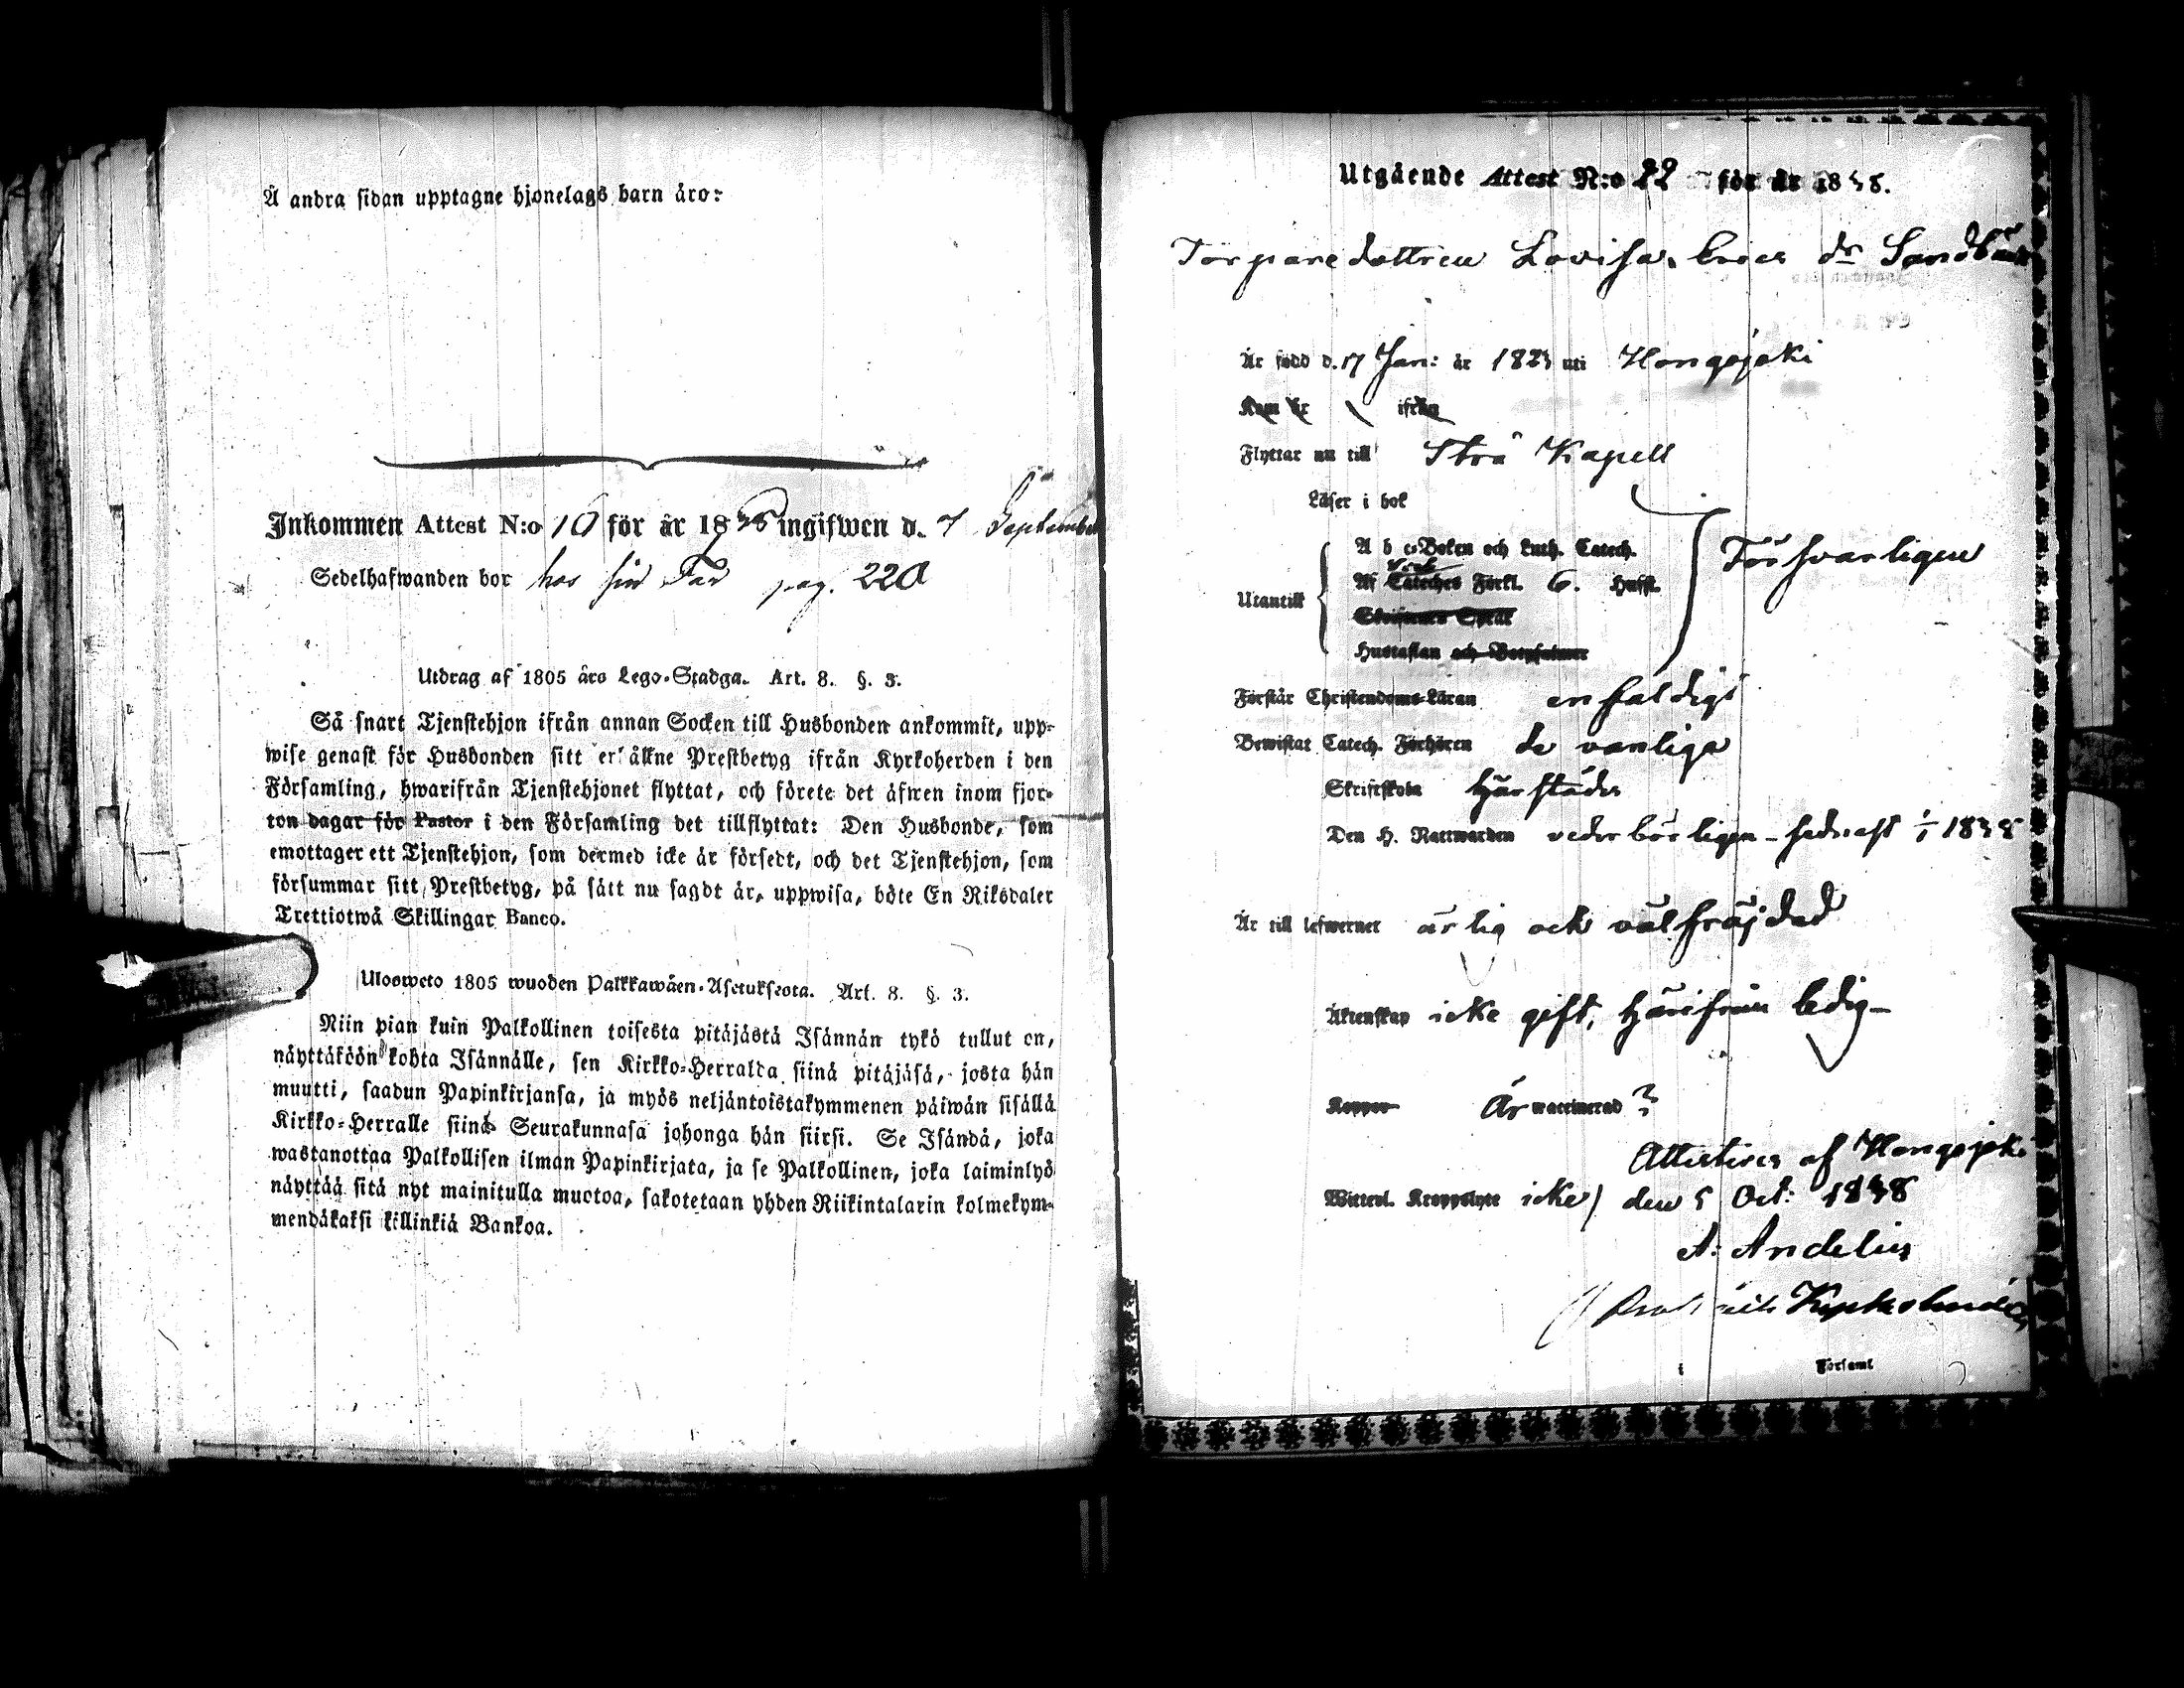 Å andra sidan upptagne hjonelags barn äro:
Inkommen Attest N:o 10 för år 1838 ingifwen d. 7 September
Sedelhafwanden bor hos sin Far pag. 220
Utdrag af 1805 års Lego-Stadga. Art. 8. §. 3.
Så snart Tjenstehjon ifrån annan Socken till Husbonden ankommit, upp-
wise genast för Husbonden sitt erhållne Prestbetyg ifrån Kyrkoherden i den
Församling, hwarifrån Tjenstehjonet flyttat, och förete det äfwen inom fjor-
ton dagar för Pastor i den Församling det tillflyttat: Den Husbonde, som
emottager ett Tjenstehjon, som dermed icke är försedt, och det Tjenstehjon, som
försummar sitt Prestbetyg, på sätt nu sagdt är, uppwisa, böte En Riksdaler
Trettiotwå Skillingar Banco.
Ulosweto 1805 wuoden Palkkawäen-Asetuksesta. Art. 8. §. 3.
Niin pian kuin Palkollinen toisesta pitäjästä Isännän tykö tullut on,
näyttäköön kohta Isännälle, sen Kirkko-Herralda siinä pitäjäsä, josta hän
muutti, saadun Papinkirjansa, ja myös neljäntoistakymmenen päiwän sisällä
Kirkko-Herralle siinä Seurakunnasa johonga hän siirsi. Se Isändä, joka
wastanottaa Palkollisen ilman Papinkirjata, ja se Palkollinen, joka laiminlyö
näyttää sitä nyt mainitulla muotoa, sakotetaan yhden Riikintalarin kolmekym-
mendäkaksi killinkiä Bankoa.
Utgående Attest N:o 22 för år 1838.
Torparedottren Lovisa Erics dr Sandbäck
Är född d. 17 Jan: år 1823 uti Hongojoki
Kom år ifrån
Flyttar nu till Kapell
Läser i bok
A b c-Boken och Luth. Catech. Försvarligen
Af Catechef Förkl. 6. Hufst.
Utantill
Skriftenes Språk
Hustaflan och Botpsalmer
Förstår Christendoms-Läran enfaldigt
Bewistat Catech. Förhören de vanliga
Skriftskola härstädes
Den H. Nattwarden vederbörligen - sednast 1838
Är till lefwernet ärlig och välfräjdad
Äktenskap icke gift, härifrån ledig
Koppor Är waccinerad
Attesteras af Hongojoki
Wittert. Kroppslyte icke / den 5 Oct: 1838
A: Andelin
i Församl